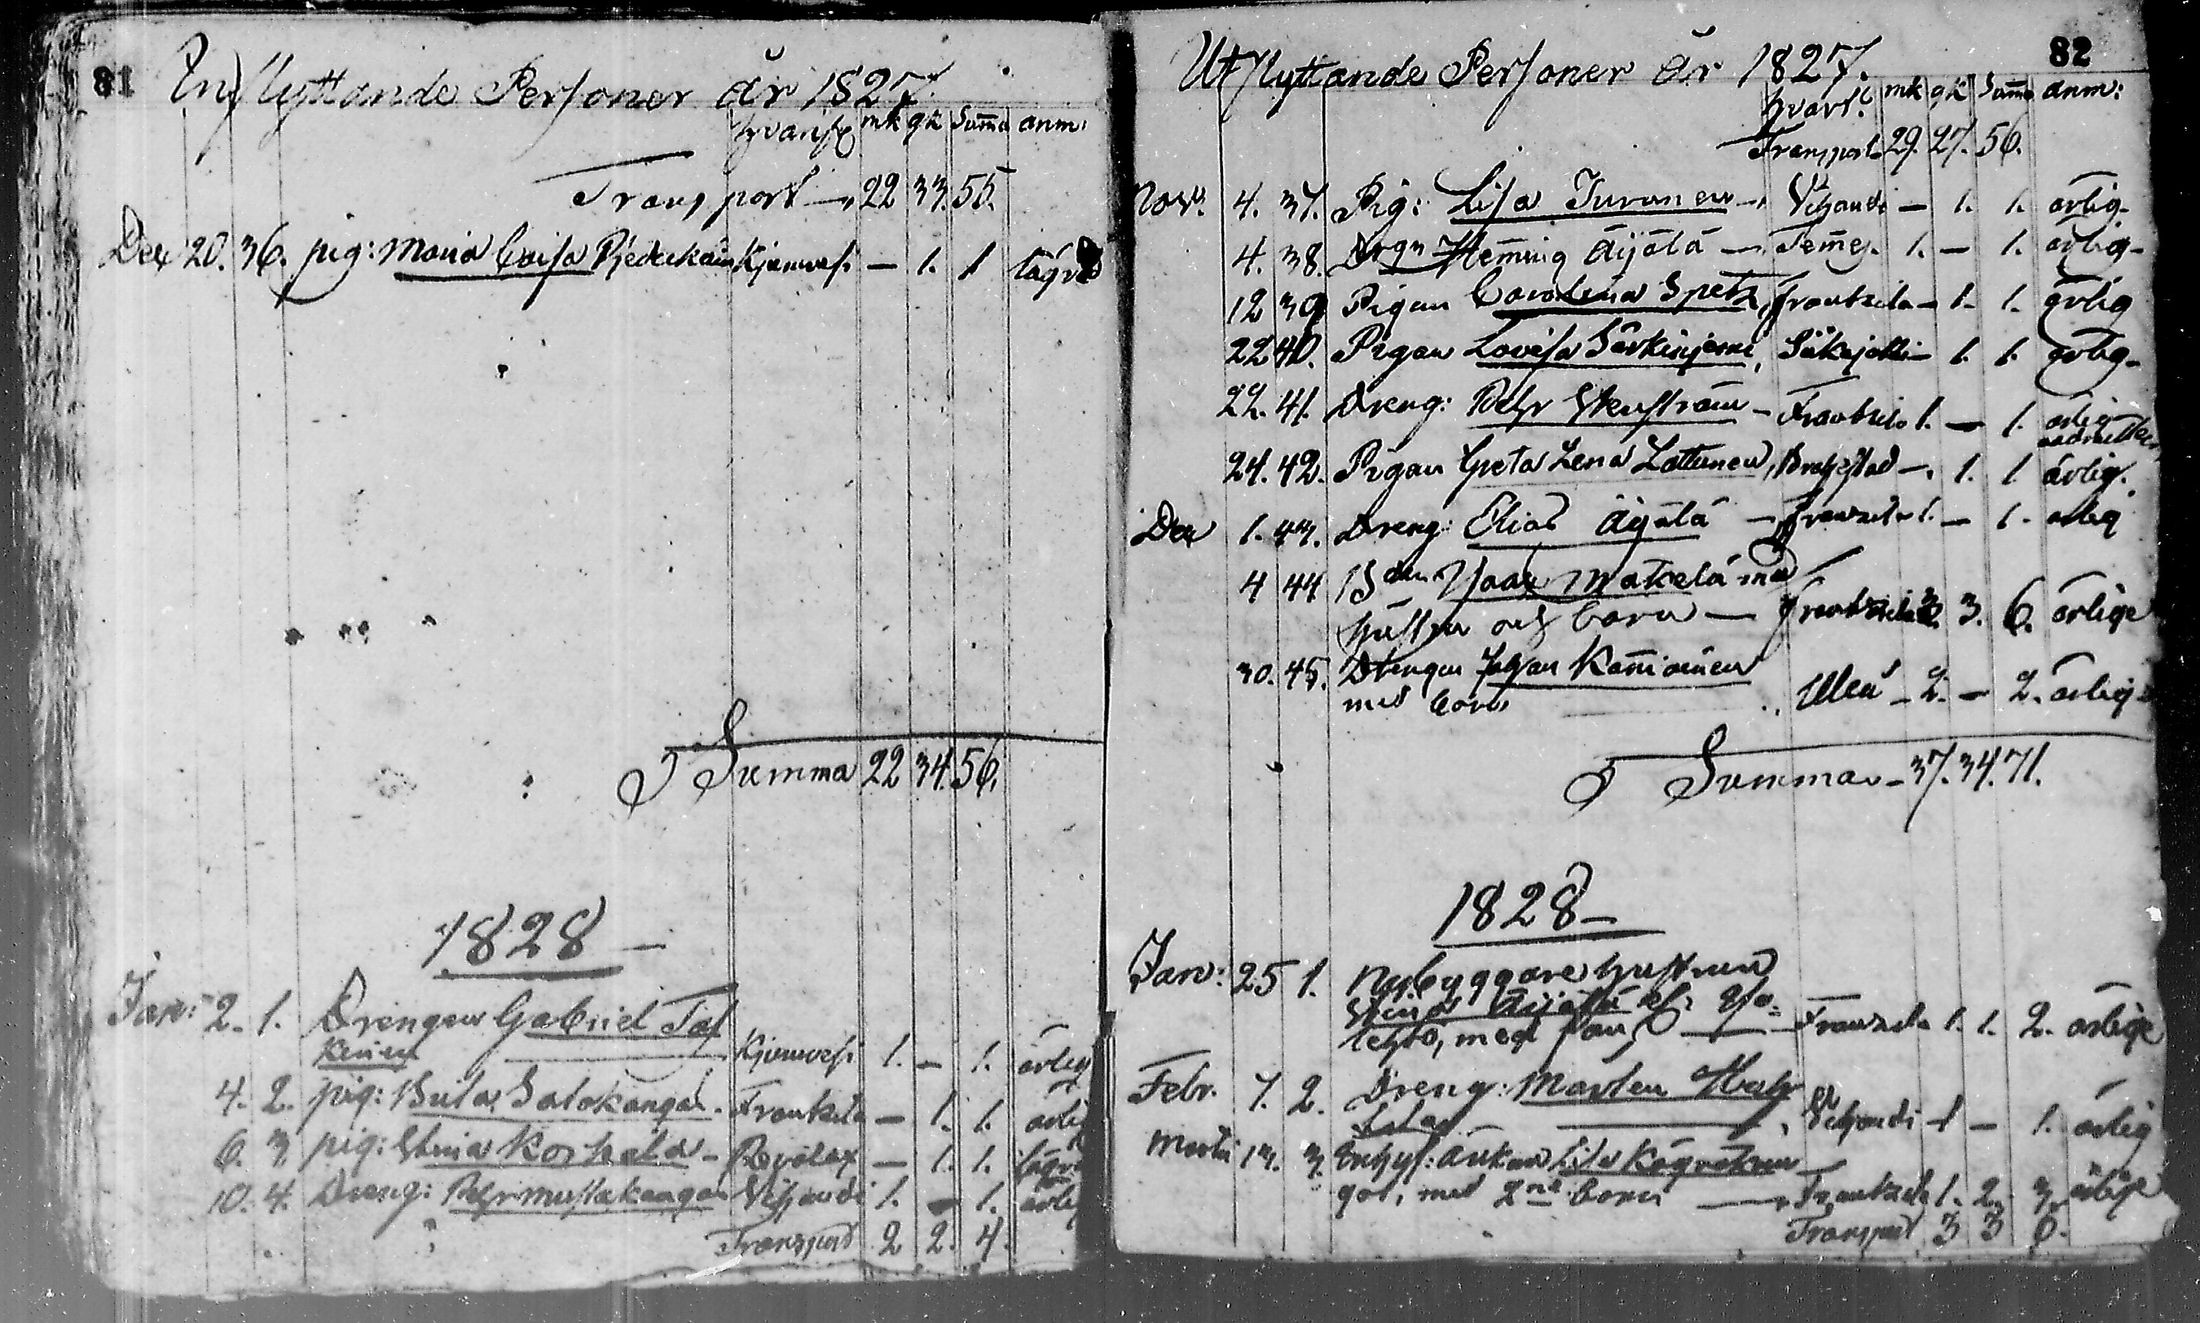 81
Inflyttande Personer År 1827.
hvarifr mk qk Summa anm:
Transport — 22 33. 55.
Dec 20. 36. pig: Maria Caisa — 1. 1
I Summa 22 34. 56.
1828 —
Janv: 2. 1. Drengen Gabriel Tas
kinen 1. — 1. ärlig
4. 2. pig: Brita Salokangas. Frantsila — 1. 1. ärlig
6. 3 pig: Stina Korkala — Revolax — 1. 1.
10. 4. Dreng: Pehr Mustakangas Vihandi 1. — 1. ärlig
Transport 2 2. 4.
82
Utflyttande Personer År 1827.
hvart: mk qk Summa anm:
Transport 29. 27. 56.
Nov. 4. 37. Pig: Lisa Turunen — Vihandi — 1. 1. ärlig
4. 38. Drgn Hemming Äijälä — Temmes. 1. — 1. ärlig
12 39 Pigan Carolina Spets, Frantsila — 1. 1. ärlig
22 40. Pigan Lovisa Särkinjemi, Siikajokki — 1. 1. ärlig
22. 41. Dreng: Pehr — Frantsila 1. — 1. ärlig
24. 42. Pigan Greta Lena Lottunen, Brahestad — 1. 1 ärlig.
Dec 1. 43. Dreng: Elias Äijälä — Frantsila 1. — 1. ärlig
4 44 Bden Isaac Makelä med
hustru och barn — Frantsila 3. 3. 6. ärlige
30. 45. Drengen Johan
med barn Uleå — 2. — 2. ärlige
I Summa — 37. 34. 71.
1828 —
Janv: 25 1. Nybyggare hustrun
Stina Äijälä
med son — Frantsila 1. 1. 2. ärlige
Febr. 7. 2. Dreng: Morten
Vihandi 1 — 1. ärlig
Martii 13. 3. Enkan Lisa
med 2ne barn — Frantsila 1. 2. 3. ärlige
Transport 3 3 6.